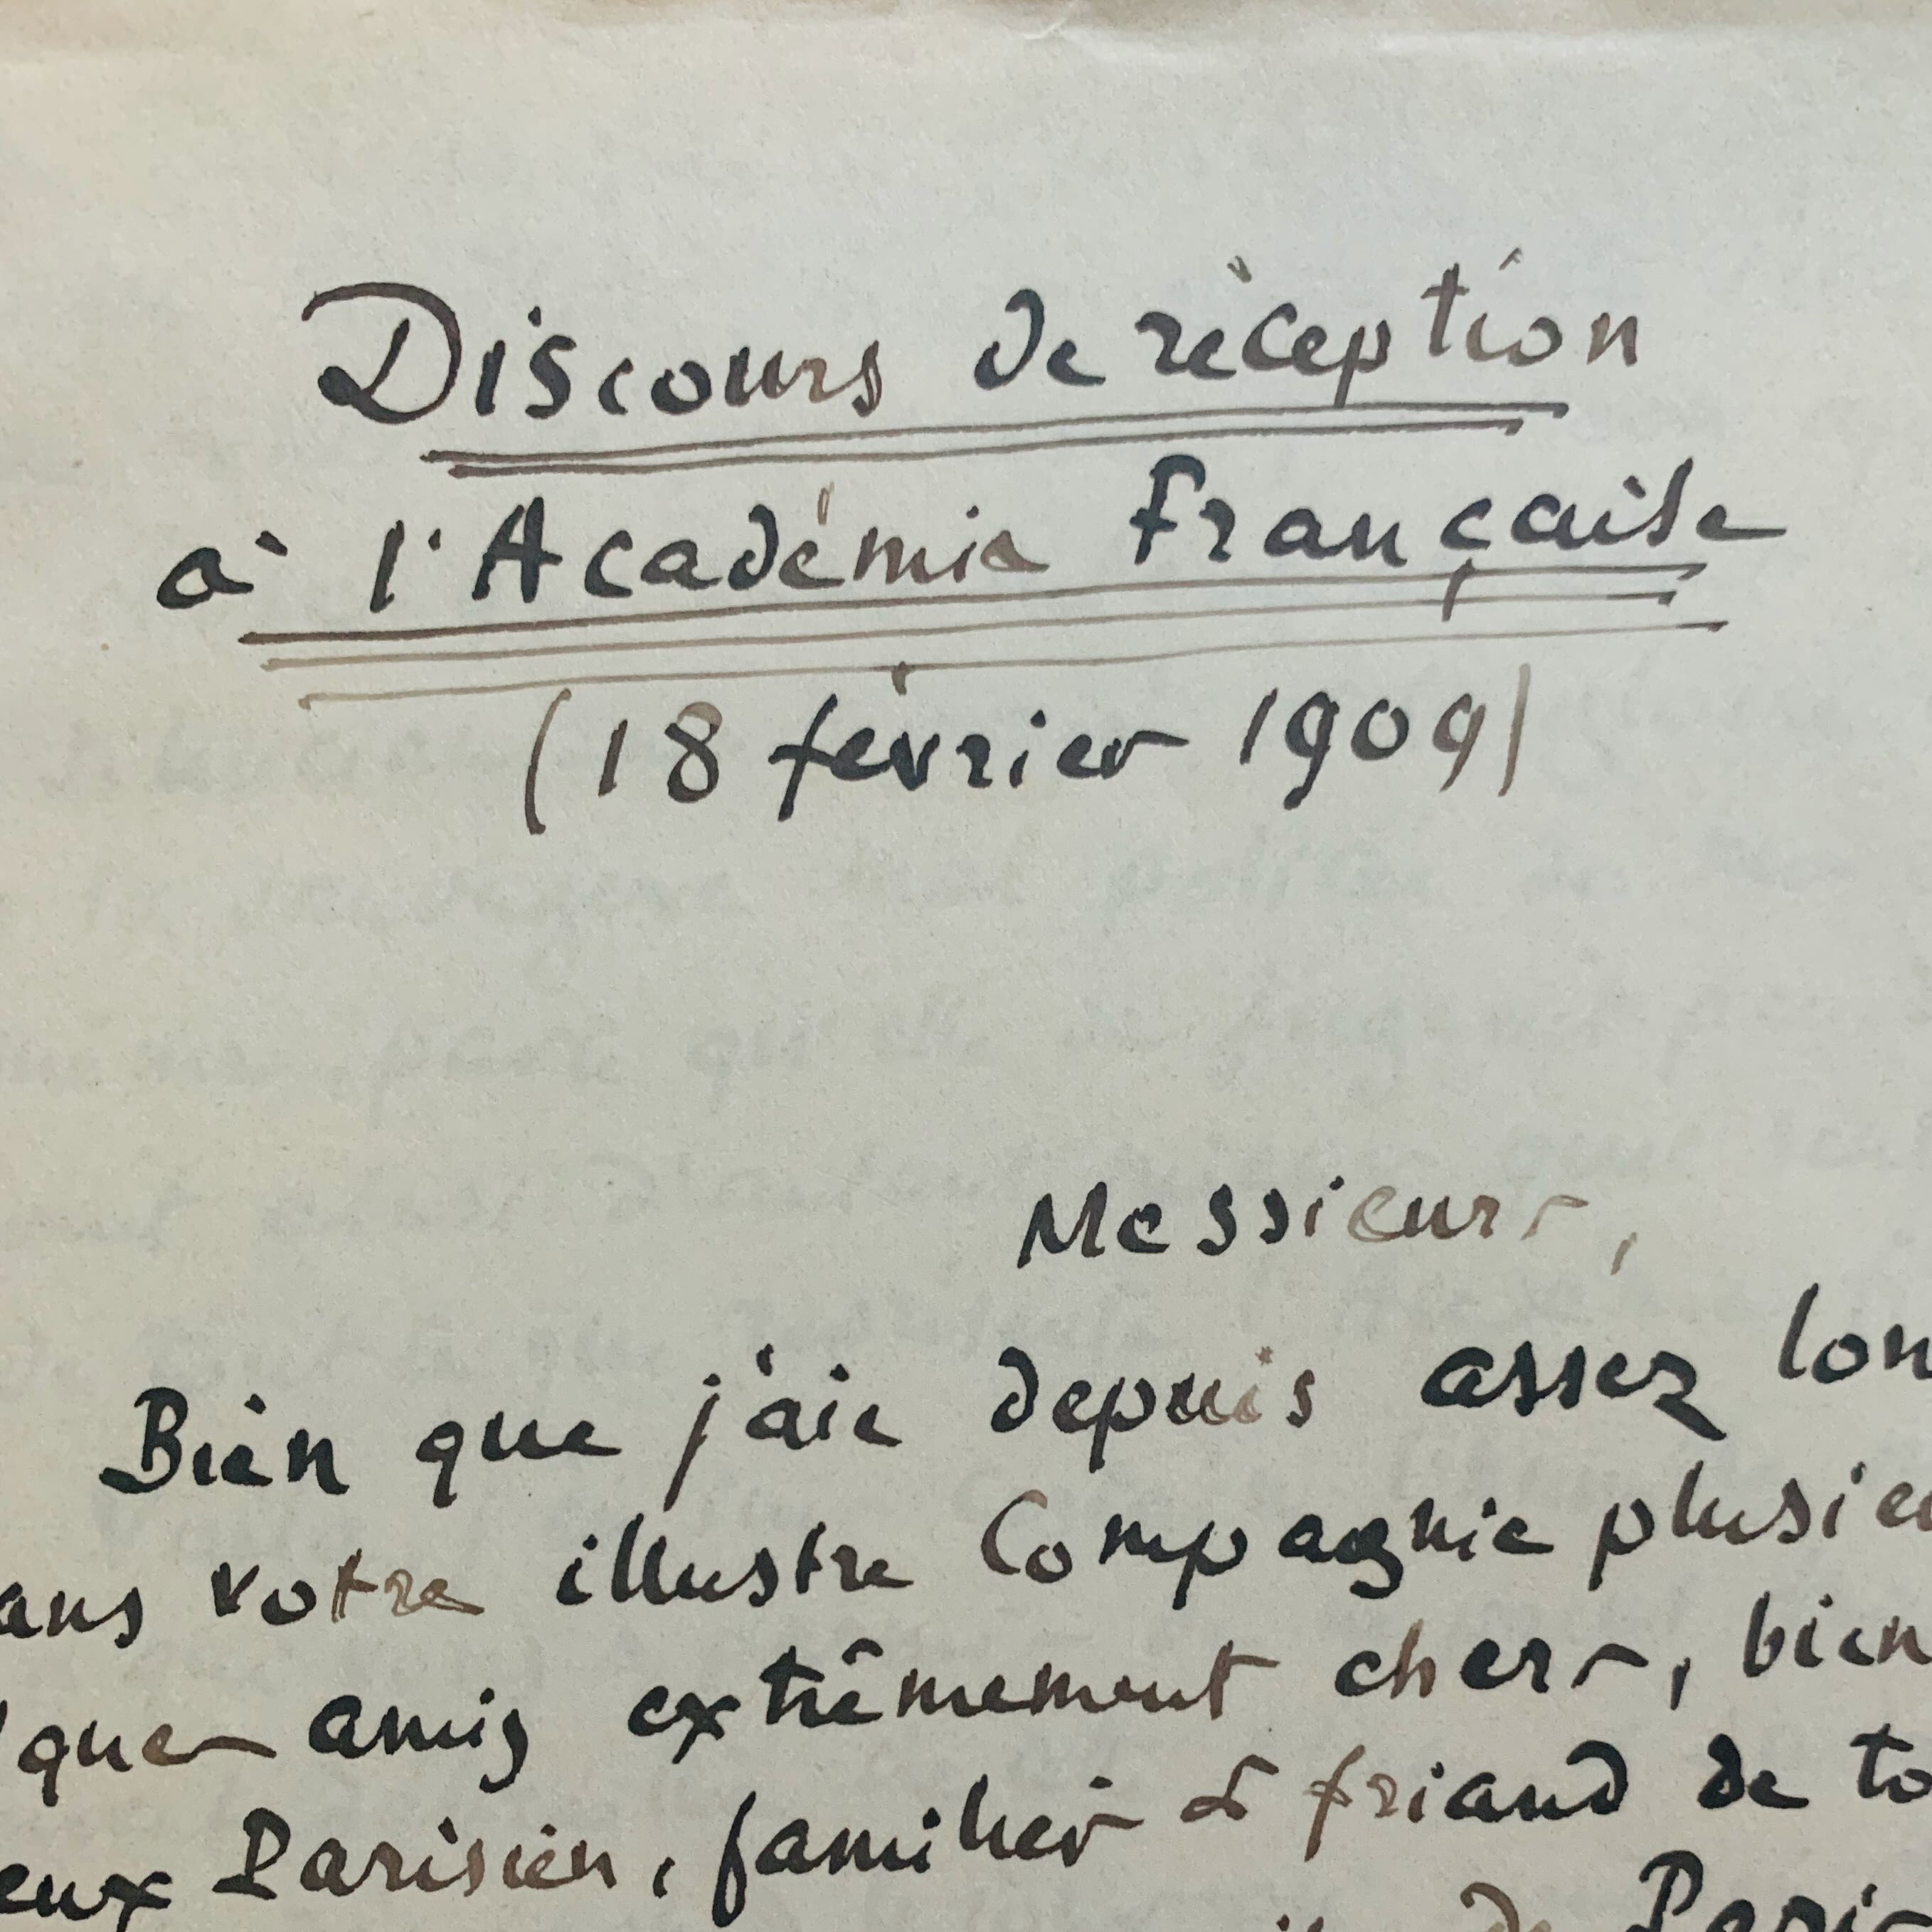 Discours de réception
à l'Académie Française
(18 février 1909)
Messieurs,
Bien que j'aie depuis assez lon
ans votre illustre Compagnie plusieu
que amis extrêmement chers, bien
eux Parisien, familier & friand de to
de Paris